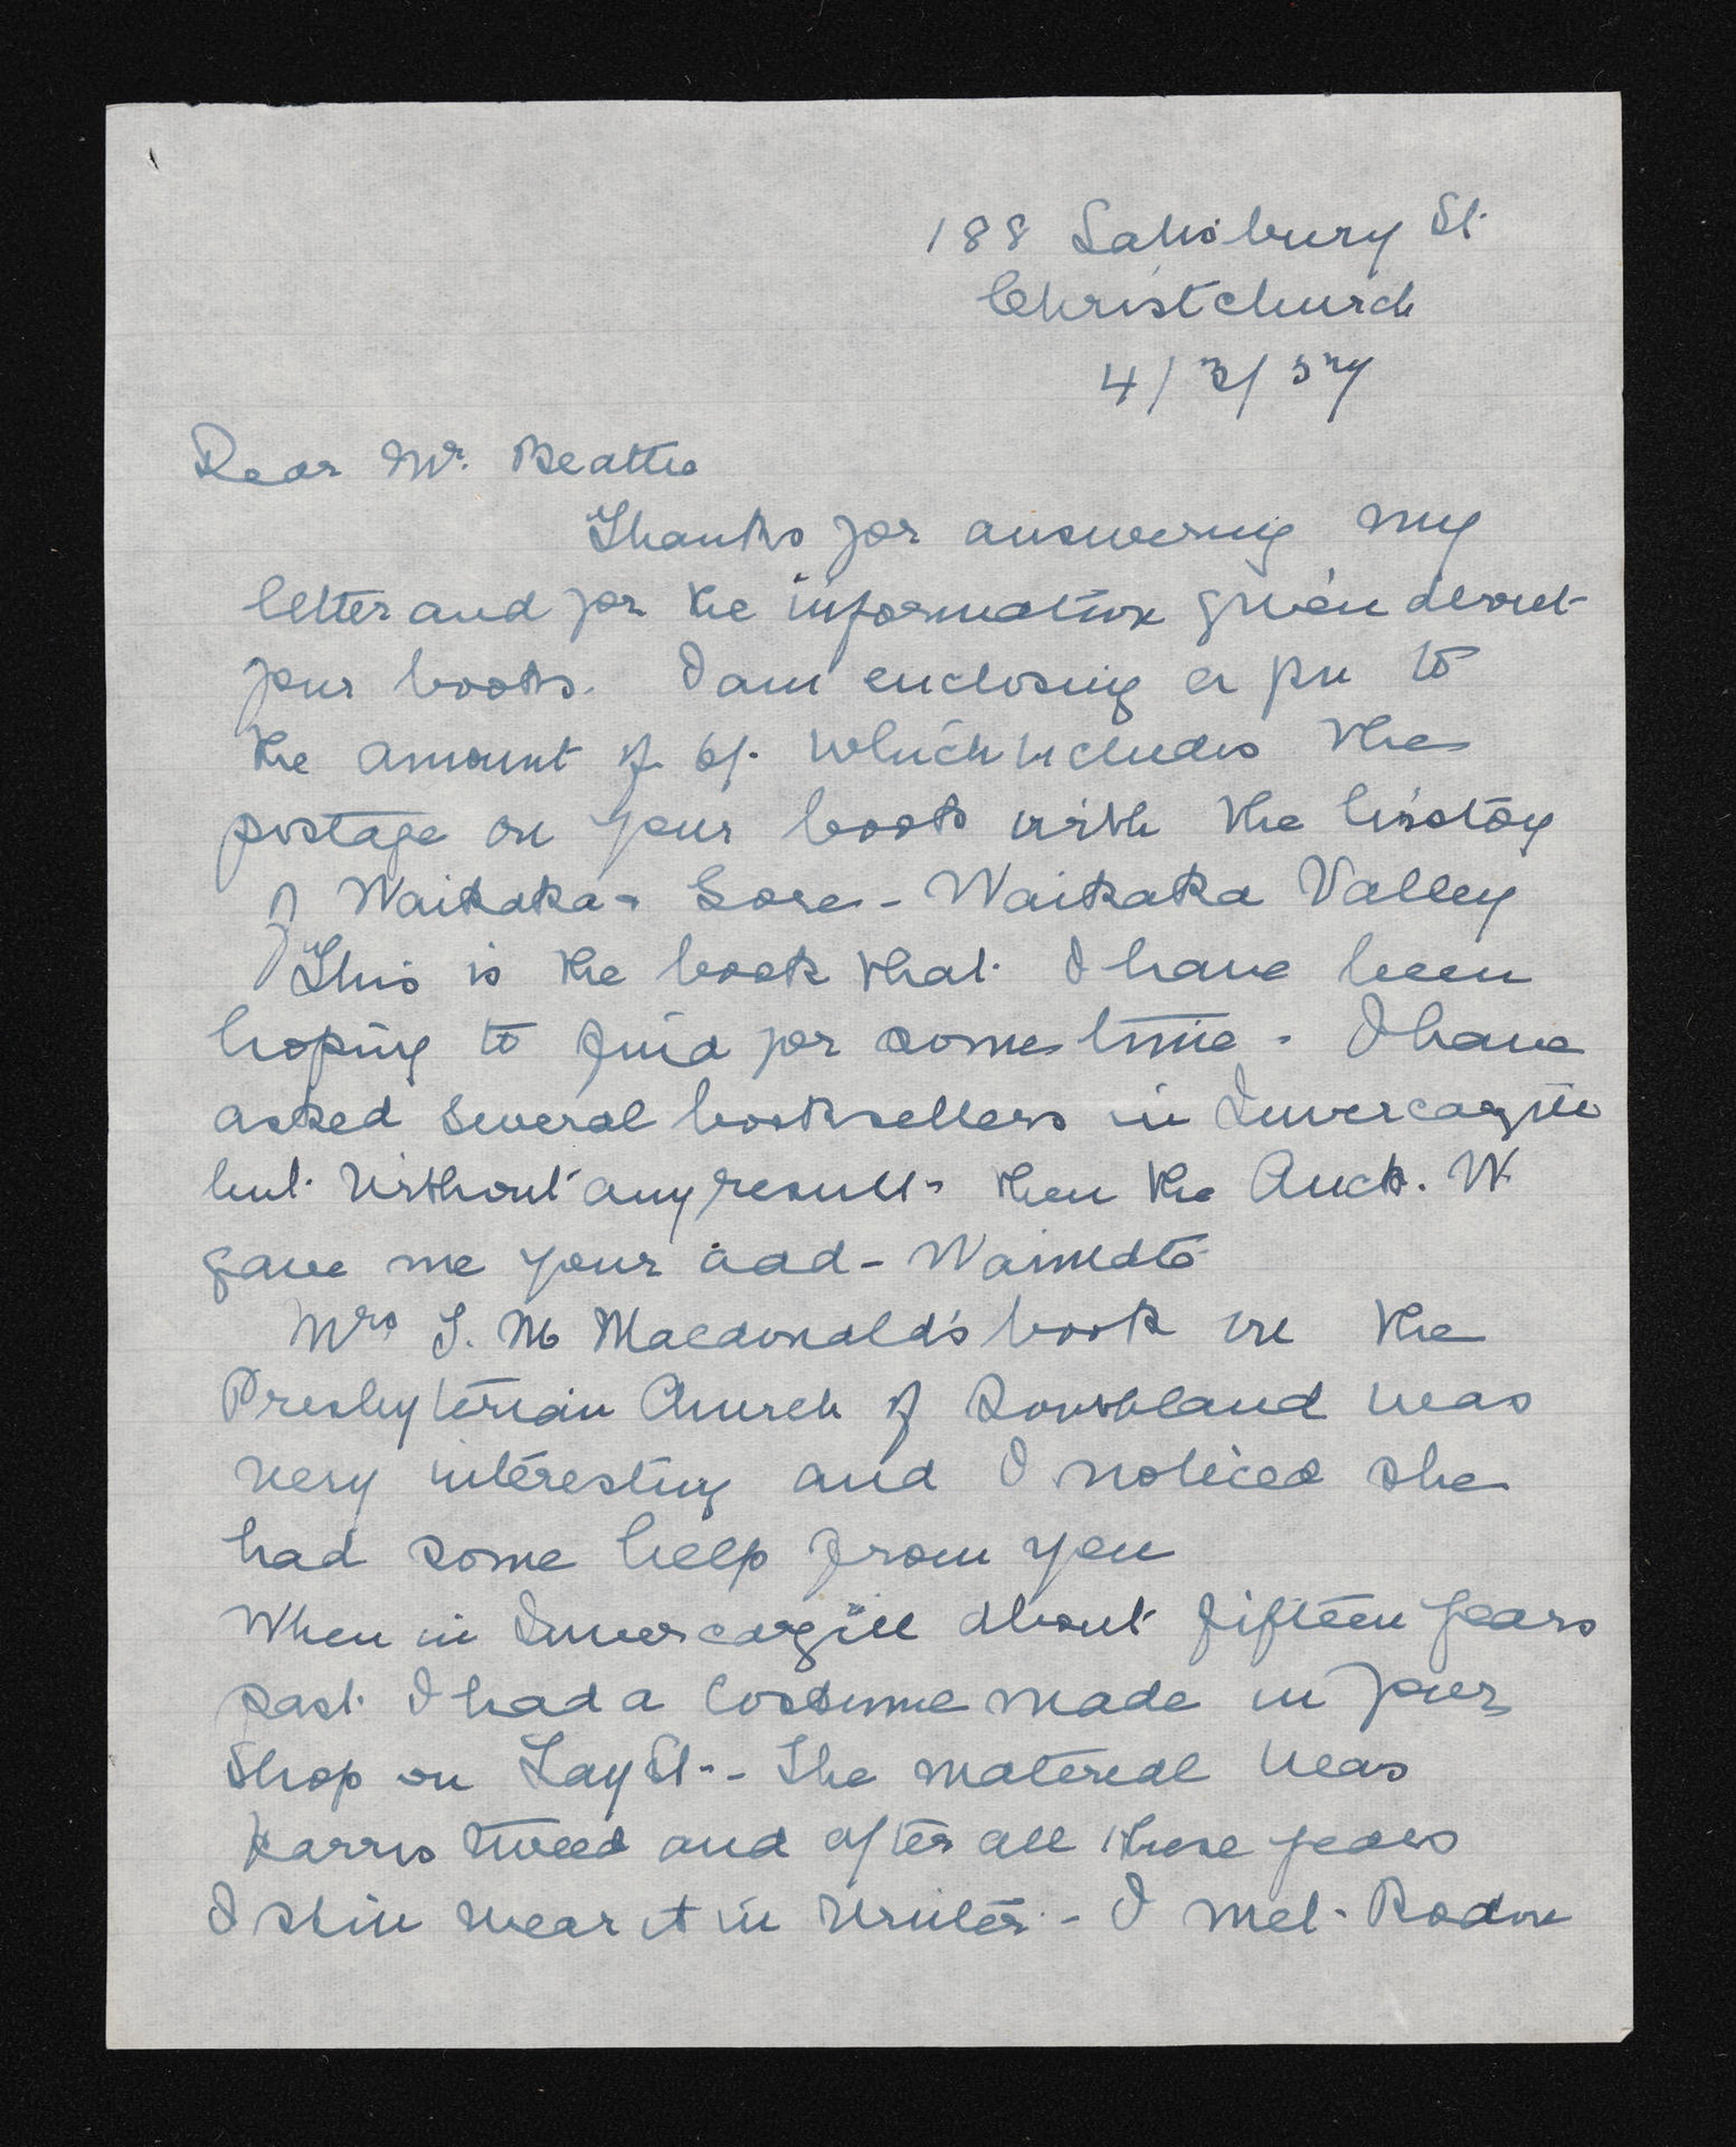 188 Salisbury St.
Christchurch
4/3/57
Dear Mr. Beattie
Thanks for answering my
letter and for the information given about
your books. I am enclosing a pn to
the amount of 6/- which includes the
postage on your book with the history
of Waikaka - Gore - Waikaka Valley
This is the book that I have been
hoping to find for some time - I have
asked several booksellers in Invercargill
but without any result - then the Auck. W
gave me your add - Waimate
Mrs J. M Macdonald's book on the
Presbyterian Church of Southland was
very interesting and I noticed she
had some help from you
When in Invercargill about fifteen years
past I had a costume made in your
Shop on Tay St. - The material was
Harris tweed and after all these years
I still wear it in winter - I met